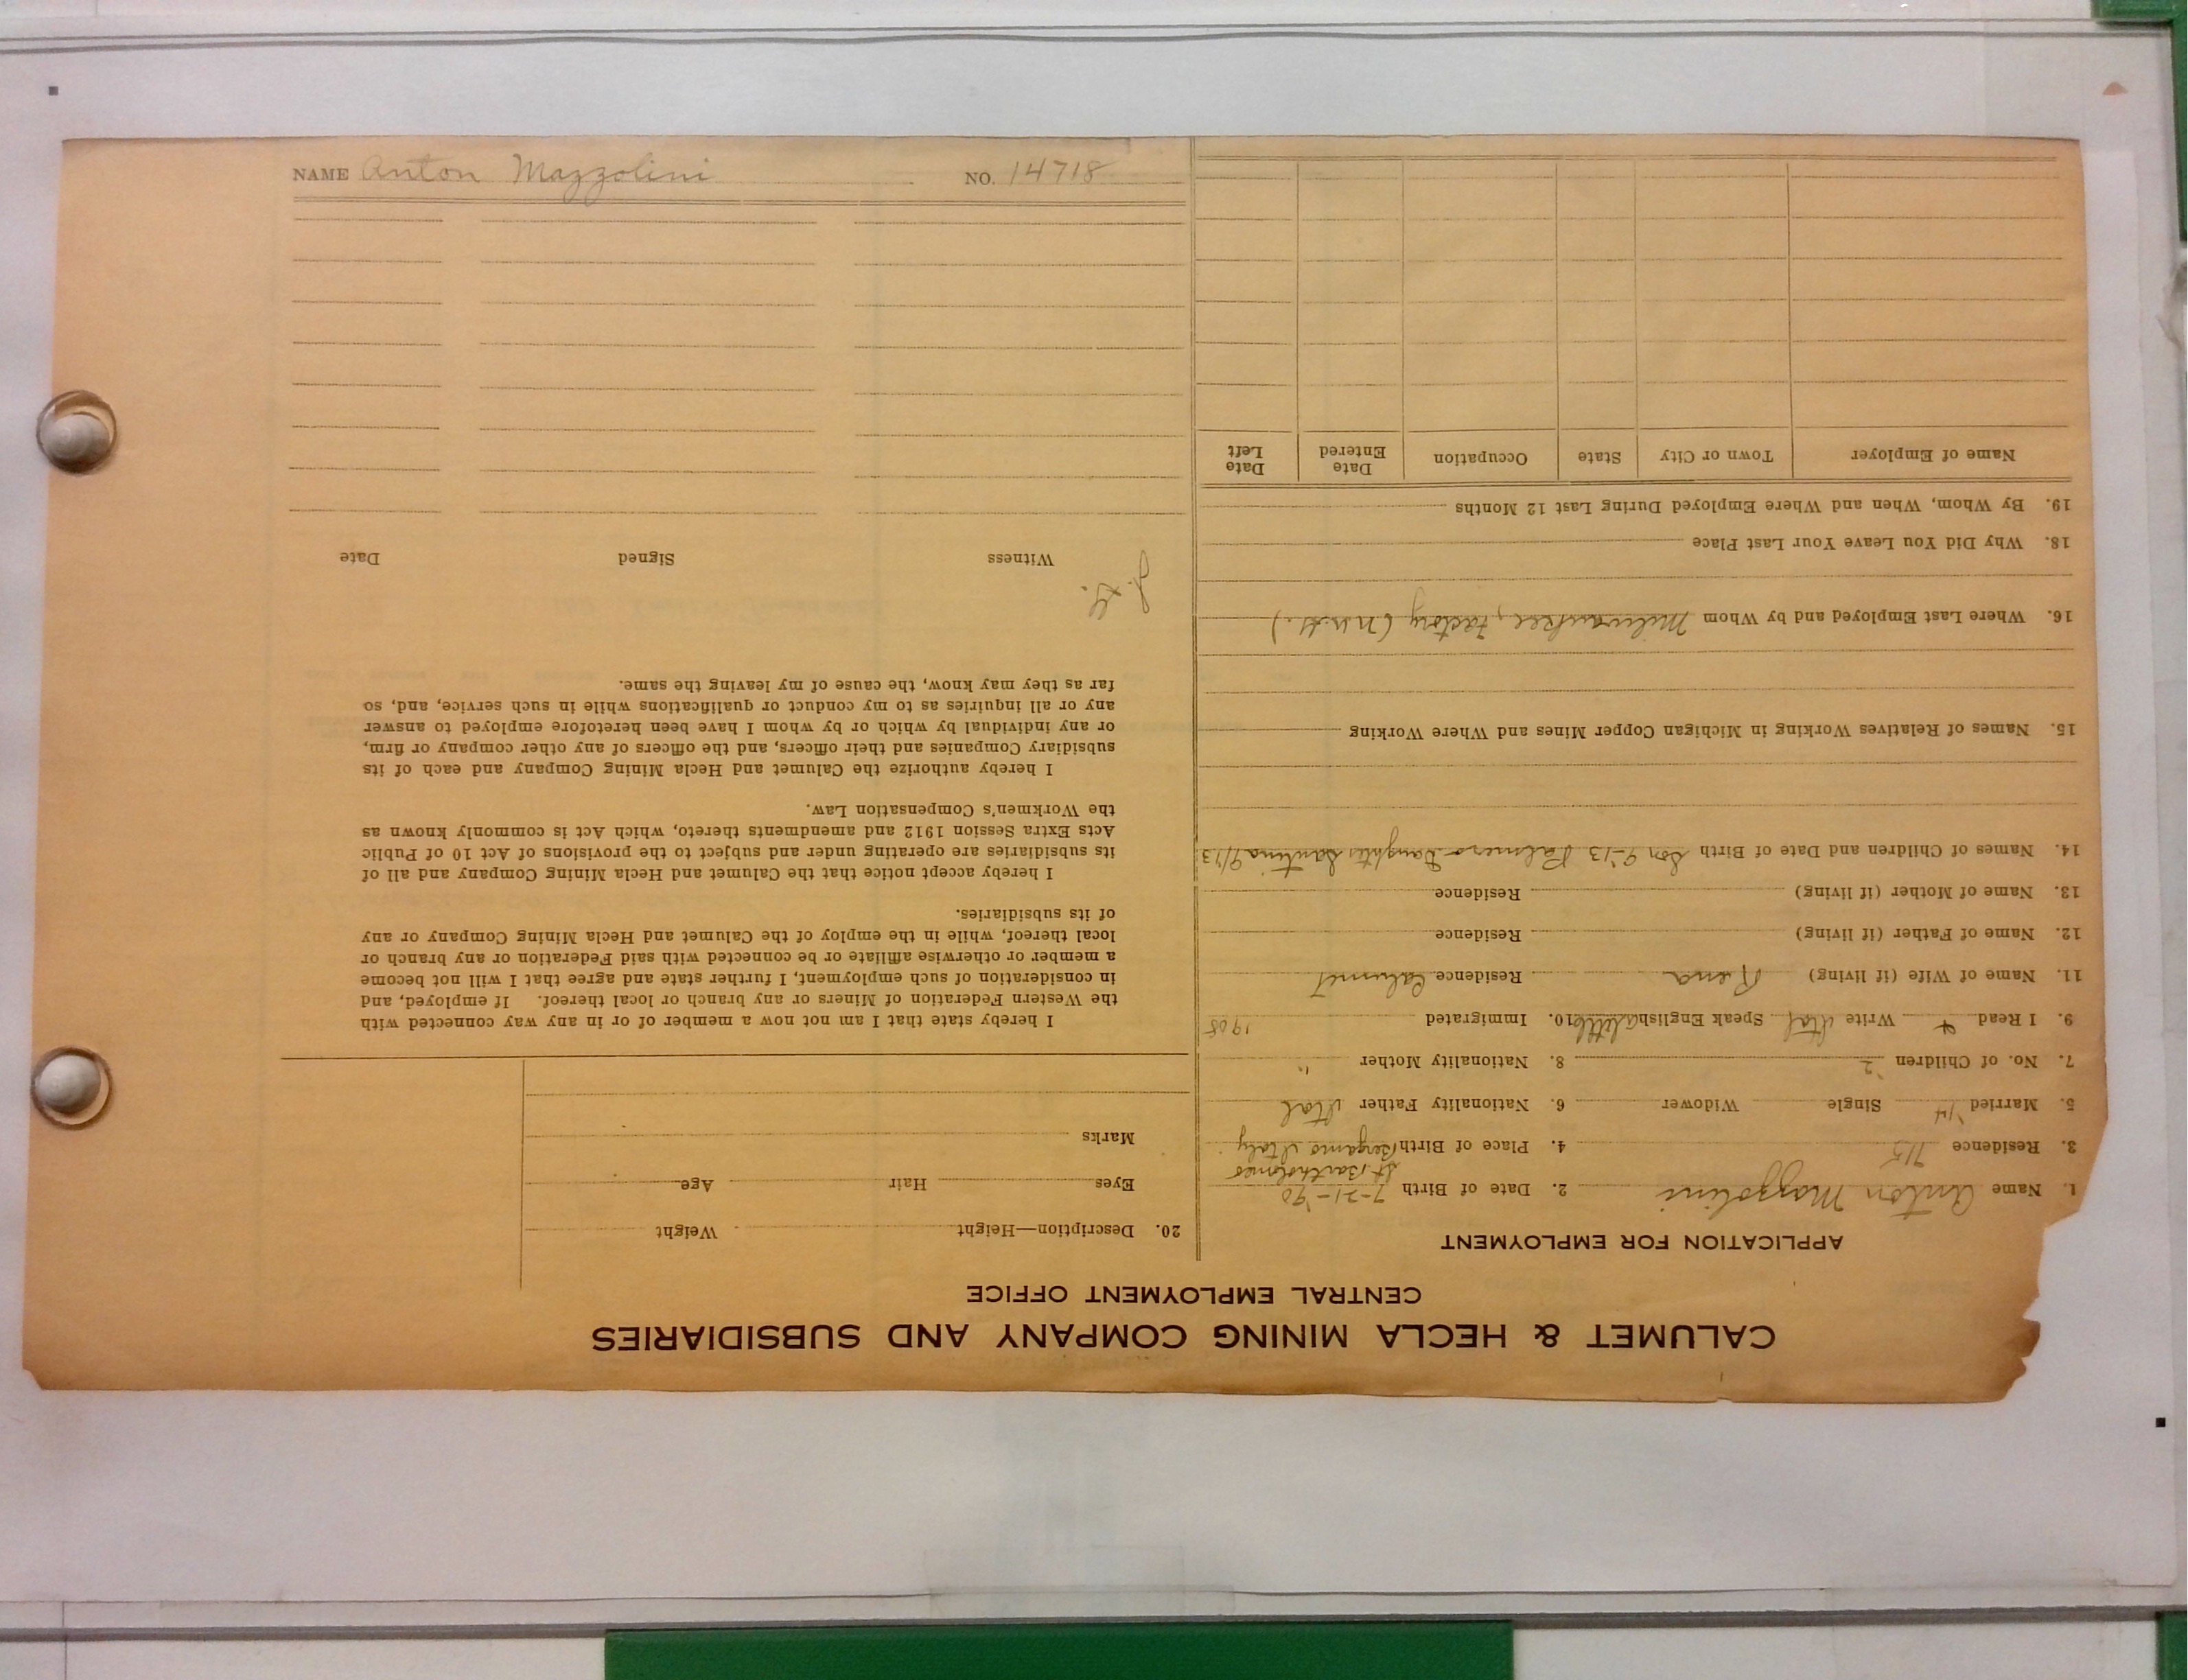 CALUMET & HECLA MINING COMPANY AND SUBSIDIARIES
CENTRAL EMPLOYMENT OFFICE
APPLICATION FOR EMPLOYMENT
1. Name Anton Mazzolini 2. Date of Birth 7-21-'90
St. Bartholomeo
3. Residence 715 4. Place of Birth Bergamo Italy
5. Married '14 Single Widower 6. Nationality Father Ital
7. No. of Children 2 8. Nationality Mother "
9. I Read & Write Ital Speak English a little 10. Immigrated 1908
11. Name of Wife (if living) Rena Residence Calumet
12. Name of Father (if living) Residence
13. Name of Mother (if living) Residence
14. Names of Children and Date of Birth Son 9-'13 Palmero Daughter Santina 9/13
15. Names of Relatives Working in Michigan Copper Mines and Where Working
16. Where Last Employed and by Whom Milwaukee, factory
18. Why Did You Leave Your Last Place
19. By Whom, When and Where Employed During Last 12 Months
Name of Employer Town or City State Occupation Date Entered Date Left
20. Description—Height Weight
Eyes Hair Age
Marks
I hereby state that I am not now a member of or in any way connected with
the Western Federation of Miners or any branch or local thereof. If employed, and
in consideration of such employment, I further state and agree that I will not become
a member or otherwise affiliate or be connected with said Federation or any branch or
local thereof, while in the employ of the Calumet and Hecla Mining Company or any
of its subsidiaries.
I hereby accept notice that the Calumet and Hecla Mining Company and all of
its subsidiaries are operating under and subject to the provisions of Act 10 of Public
Acts Extra Session 1912 and amendments thereto, which Act is commonly known as
the Workmen's Compensation Law.
I hereby authorize the Calumet and Hecla Mining Company and each of its
subsidiary Companies and their officers, and the officers of any other company or firm,
or any individual by which or by whom I have been heretofore employed to answer
any or all inquiries as to my conduct or qualifications while in such service, and, so
far as they may know, the cause of my leaving the same.
Witness Signed Date
NAME Anton Mazzolini NO. 14718